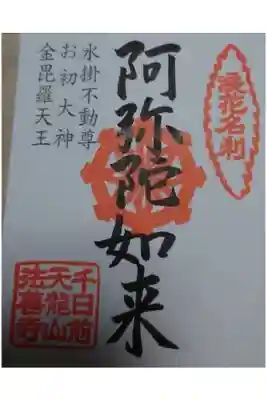 浪花名刹
阿弥陀如来
水掛不動尊
お初大神
金毘羅天王
千日前
天龍山
法善寺